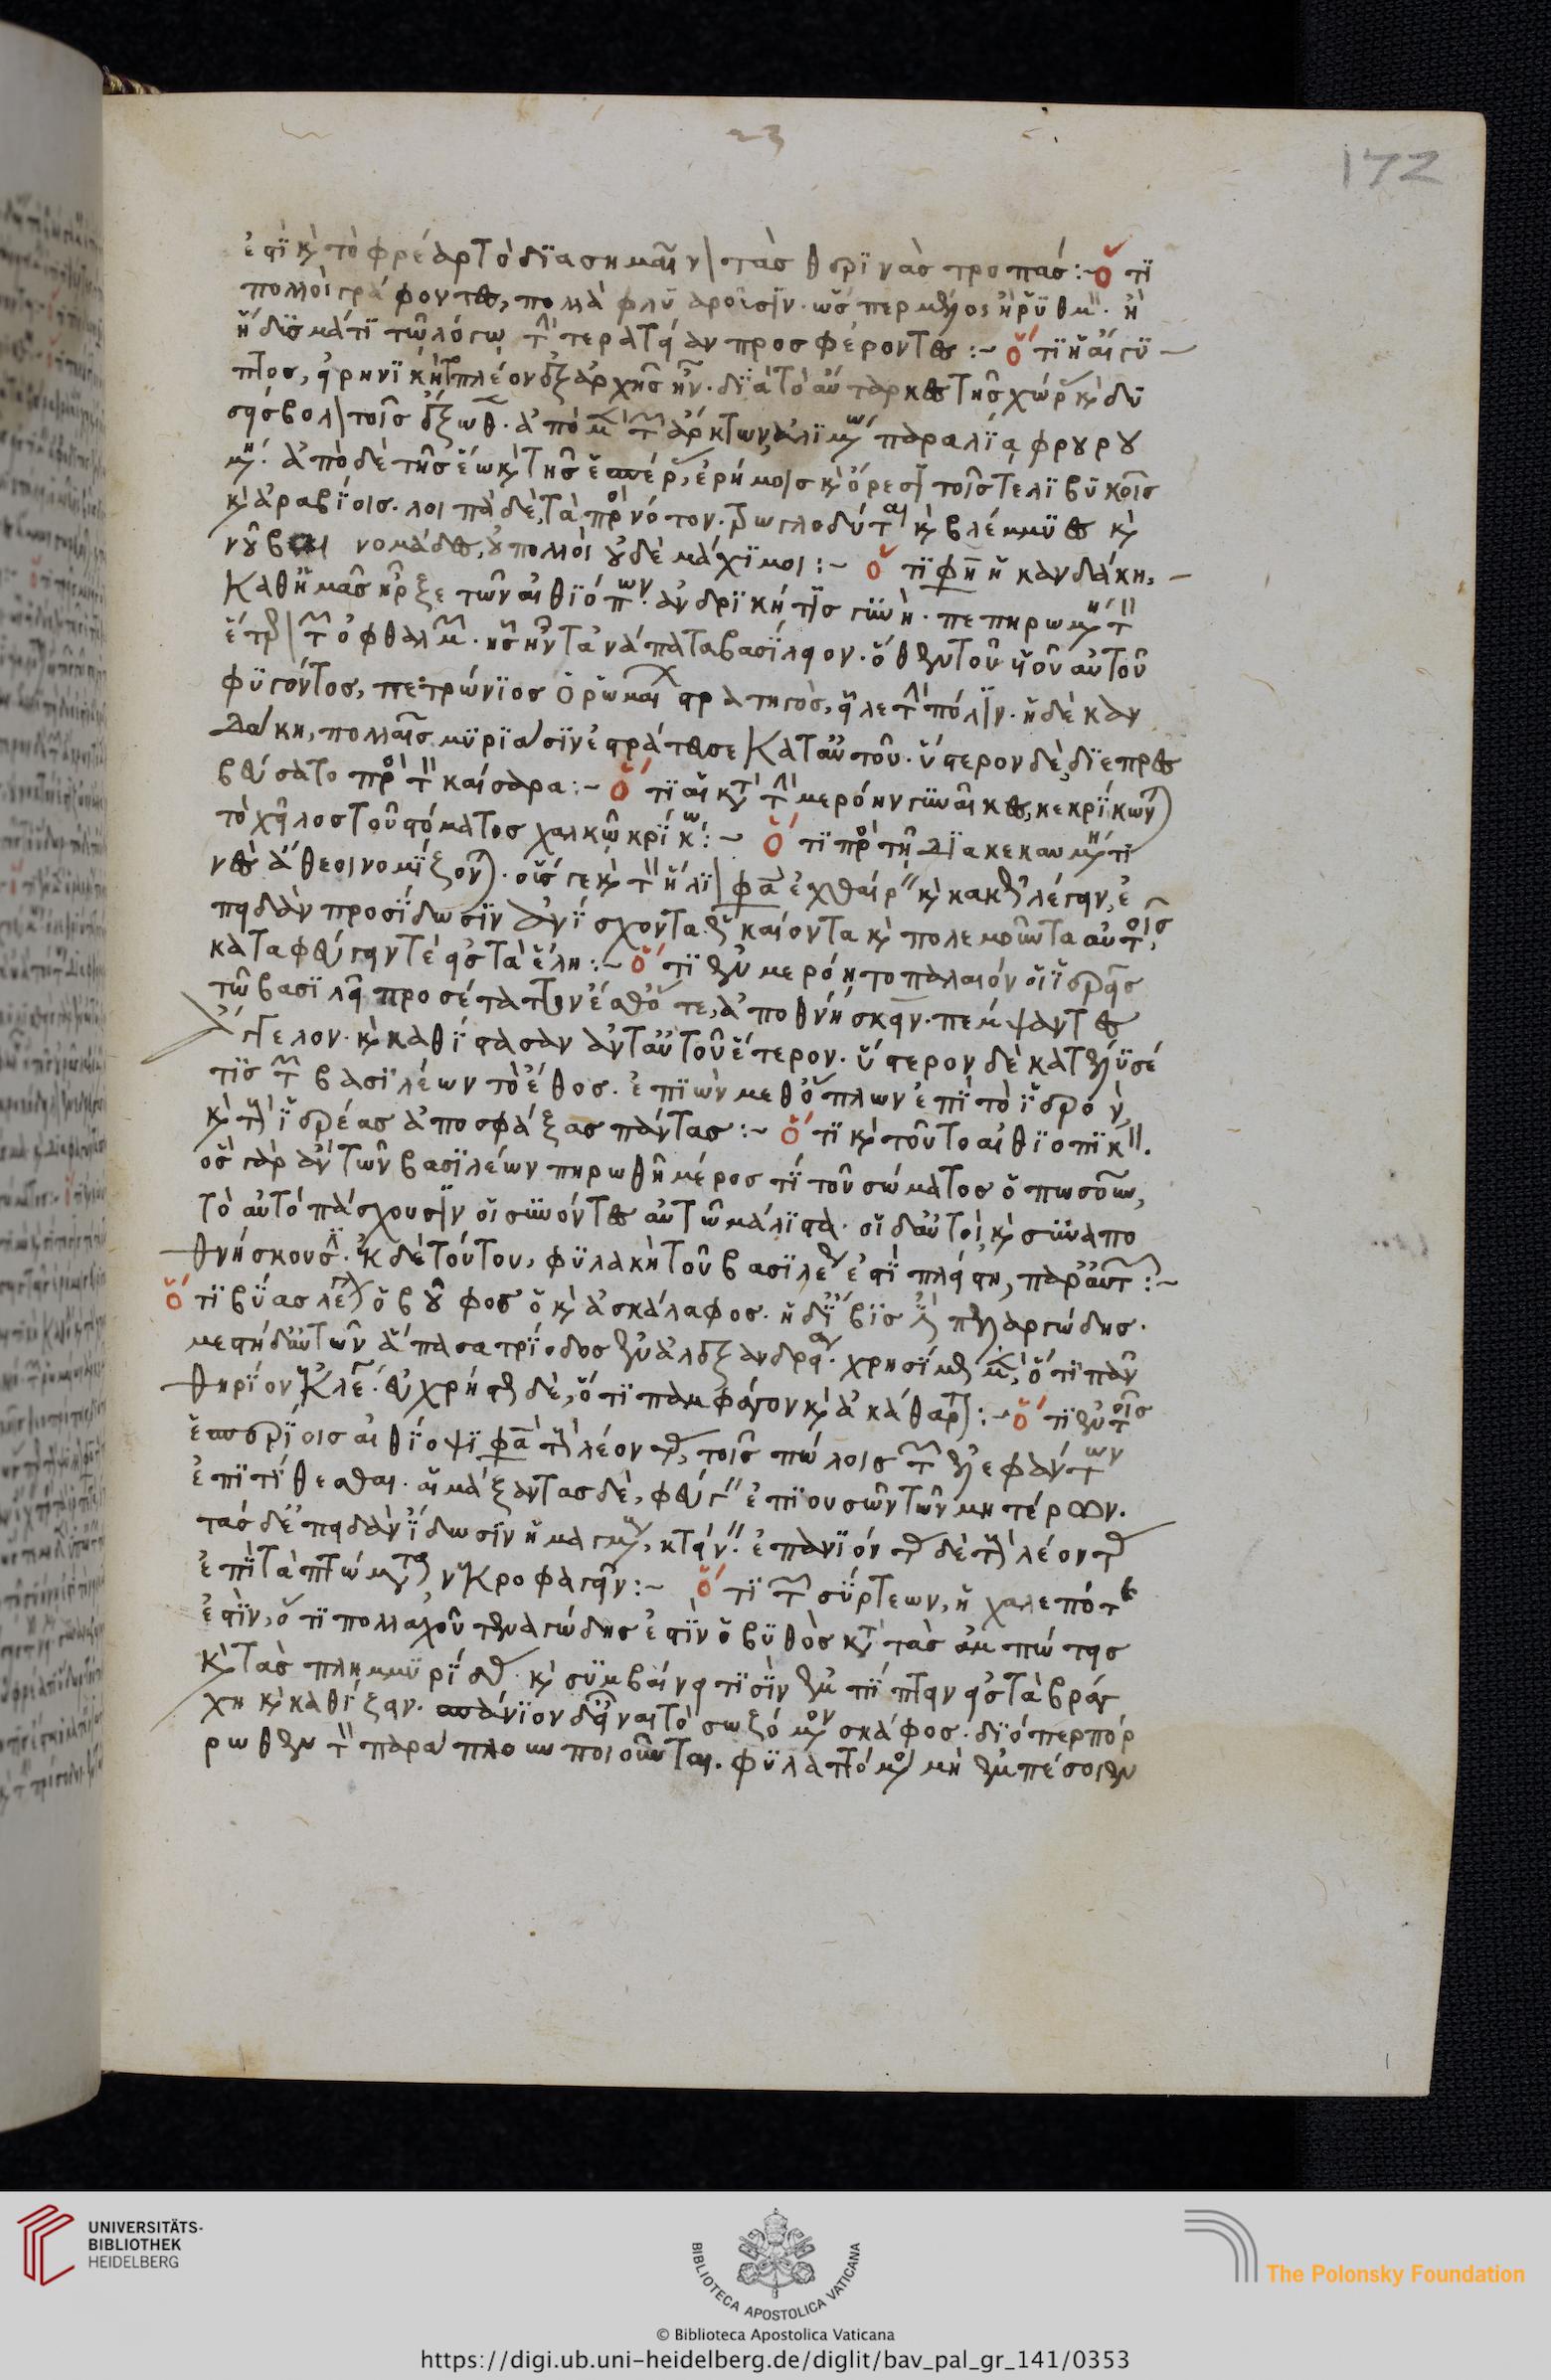 23
172
ἐστὶ καὶ τὸ φρέαρ τὸ διασημαῖνον τὰς θερινὰς τροπάς:- ὅτι
πολλοὶ γράφοντες, πολλὰ φλυαροῦσιν. ὥσπερ μέλος ἢ ῥυθμὸν. ἢ
ἥδυσμά τι τῷ λόγῳ τὴν τερατείαν προσφέροντες:- ὅτι ἡ αἴγυ
πτος, εἰρηνικὴ τὸ πλέον ἐξ ἀρχῆς ἦν. διὰ τὸ αὔταρκες τῆς χώρας καὶ δυ
σείσβολον τοῖς ἔξωθεν. ἀπὸ μὲν τῶν ἄρκτων, ἀλιμένῳ παραλίᾳ φρουρου
μένη. ἀπὸ δὲ τῆς ἕω καὶ τῆς ἑσπέρας, ἐρήμοις καὶ ὄρεσι τοῖς τε λιβυκοῖς
καὶ ἀραβίοις. λοιπὰ δὲ, τὰ πρὸς νότον. τρωγλοδύται καὶ βλέμμυες καὶ
νοῦβαι νομάδες, οὐ πολλοὶ οὐδὲ μάχιμοι:- ὅτι φησὶν ἡ κανδάκη,
καθ' ἡμᾶς ἦρξε τῶν αἰθιόπων. ἀνδρική τις γυνὴ. πεπηρωμένη τὸν
ἕτερον τῶν ὀφθαλμῶν. ἧς ἦν τὰ νάπατα βασίλειον. ὅθεν τοῦ υἱοῦ αὐτοῦ
φυγόντος, πετρώνιος ὁ ῥωμαίων στρατηγὸς, εἷλε τὴν πόλιν. ἡ δὲ καν
δάκη, πολλαῖς μυριάσιν ἐστράτευσε κατ' αὐτοῦ. ὕστερον δὲ, διεπρεσ
βεύσατο πρὸς τὸν καίσαρα:- ὅτι αἱ κατὰ τὴν μερόην γυναῖκες, κεκρίκωνται
τὸ χεῖλος τοῦ στόματος χαλκῷ κρίκῳ:- ὅτι πρὸς τῇ διακεκαυμένῃ τι
νὲς ἄθεοι νομίζονται. οἵ γε καὶ τὸν ἥλιον φασὶν ἐχθαίρειν καὶ κακῶς λέγειν, ἐ
πειδὰν προσίδωσιν ἀνίσχοντα ὡς καίοντα καὶ πολεμοῦντα αὐτοῖς,
καταφεύγειν τε εἰς τὰ ἕλη:- ὅτι ἐν μερόη τοπαλαιόν οἱ ἱερεῖς
τῷ βασιλεῖ προσέταττον ἔσθ' ὅτε, ἀποθνήσκειν. πέμψαντες
ἄγγελον. καὶ καθίστασαν ἀντ' αὐτοῦ ἕτερον. ὕστερον δὲ κατέλυσέ
τις τῶν βασιλέων τὸ ἔθος. ἐπιὼν μεθ' ὅπλων ἐπὶ τὸ ἱερὸν,
καὶ τοὺς ἱερέας ἀποσφάξας πάντας:- ὅτι καὶ τοῦτο αἰθιοπικόν.
ὃς γὰρ ἂν τῶν βασιλέων πηρωθῇ μέρος τι τοῦ σώματος ὁπωσοῦν,
τὸ αὐτὸ πάσχουσιν οἱ συνόντες αὐτῷ μάλιστα. οἱ δ' αὐτοὶ καὶ συναπο
θνήσκουσιν. ἐκ δὲ τούτου, φυλακὴ τοῦ βασιλέως ἐστὶ πλείστη, παρ' αὐτῶν:-
ὅτι βύας λέγεται ὁ βοῦφος ὁ καὶ ἀσκάλαφος. ἡ δὲ ἶβις πελαργώδης.
μεστὴ δ' αὐτῶν ἅπασα τρίοδος ἐν ἀλεξανδρείᾳ. χρησίμως μὲν, ὅτι πᾶν
θηρίον ἐκλέγει. εὐχρήστως δὲ, ὅτι παμφάγον καὶ ἀκάθαρτον:- ὅτι ἐν τοῖς
ἑσπερίοις αἰθίοψι φασὶ τοὺς λέοντας, τοῖς πώλοις τῶν ἐλεφάντων
ἐπιτίθεσθαι. αἱμάξαντας δὲ, φεύγειν ἐπιουσῶν τῶν μητέρων.
τὰς δ' ἐπειδὰν ἴδωσιν ἡμαγμένους, κτείνειν. ἐπανιόντας δὲ τοὺς λέοντας
ἐπὶ τὰ πτώματα νεκροφαγεῖν:- ὅτι τῶν σύρτεων, ἡ χαλεπότης
ἐστὶν, ὅτι πολλαχοῦ τεναγώδης ἐστὶν ὁ βυθὸς κατὰ τὰς ἀμπώτεις
καὶ τὰς πλημμυρίδας. καὶ συμβαίνει τισὶν ἐμπίπτειν εἰς τὰ βρά
χη καὶ καθίζειν. σπάνιον δ' εἶναι τὸ σωζόμενον σκάφος. διόπερ πόρ
ρωθεν τὸν παράπλουν ποιοῦνται. φυλαττόμενοι μὴ ἐμπέσοιεν
UNIVERSITÄTS-
BIBLIOTHEK
HEIDELBERG
BIBLIOTECA APOSTOLICA VATICANA
The Polonsky Foundation
© Biblioteca Apostolica Vaticana
https://digi.ub.uni-heidelberg.de/diglit/bav_pal_gr_141/0353